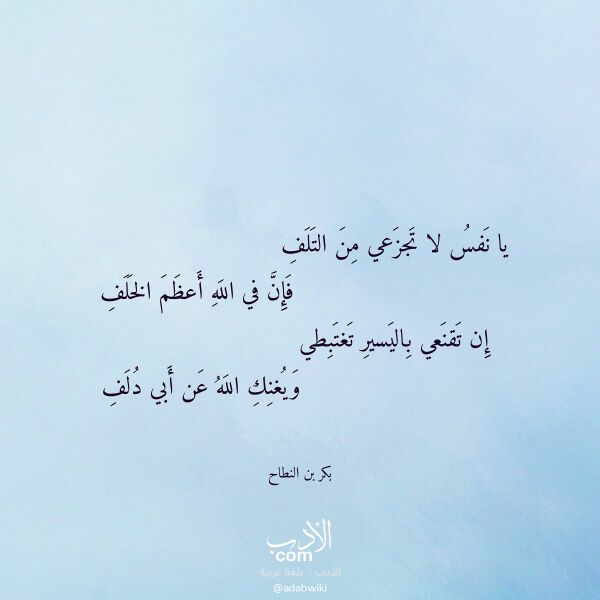 يا نَفسُ لا تَجزَعي مِنَ التَلَفِ
فَإِنَّ في اللَهِ أَعظَمَ الخَلَفِ
إِن تَقنَعي بِاليَسيرِ تَغتَبِطي
وَيُغنِكِ اللَهُ عَن أَبي دُلَفِ
بكر بن النطاح
الأدب
com
الأدب .. بلغة عربية
@adabwiki